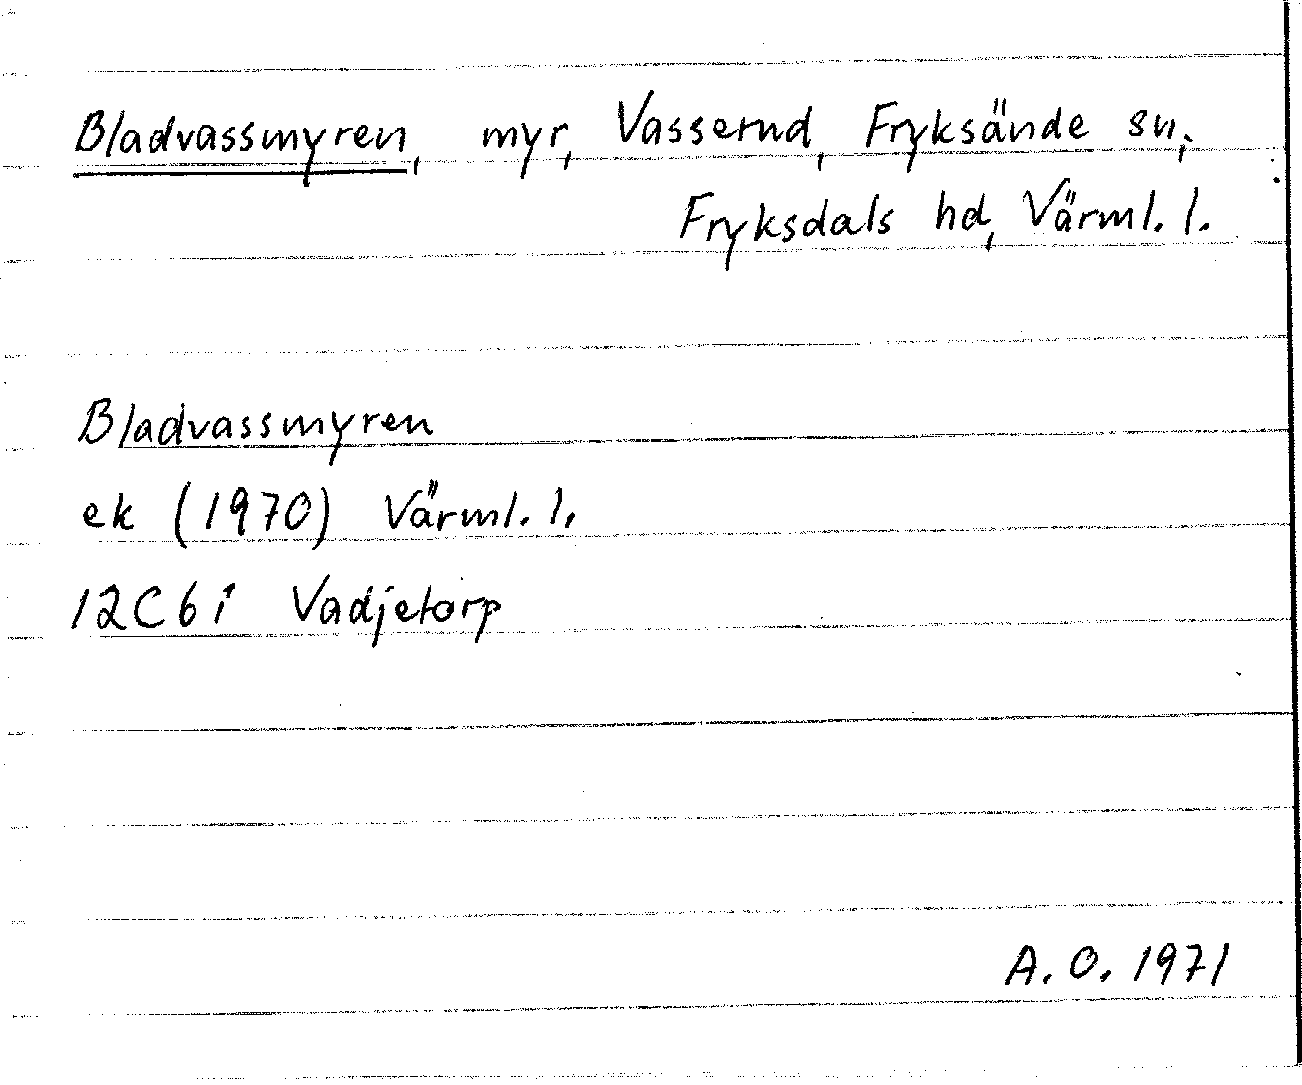 Bladvassmyren, myr, Vassernd, Fryksände sn,
Fryksdals hd, Värml. l.
Bladvassmyren
ek (1970) Värml. l.
12C6i Vadjetorp
A.O. 1971